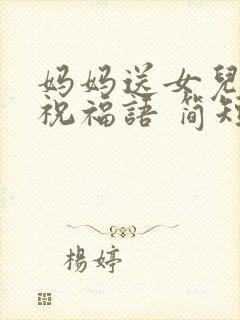 妈妈送女兒
祝福語 简短
楊婷